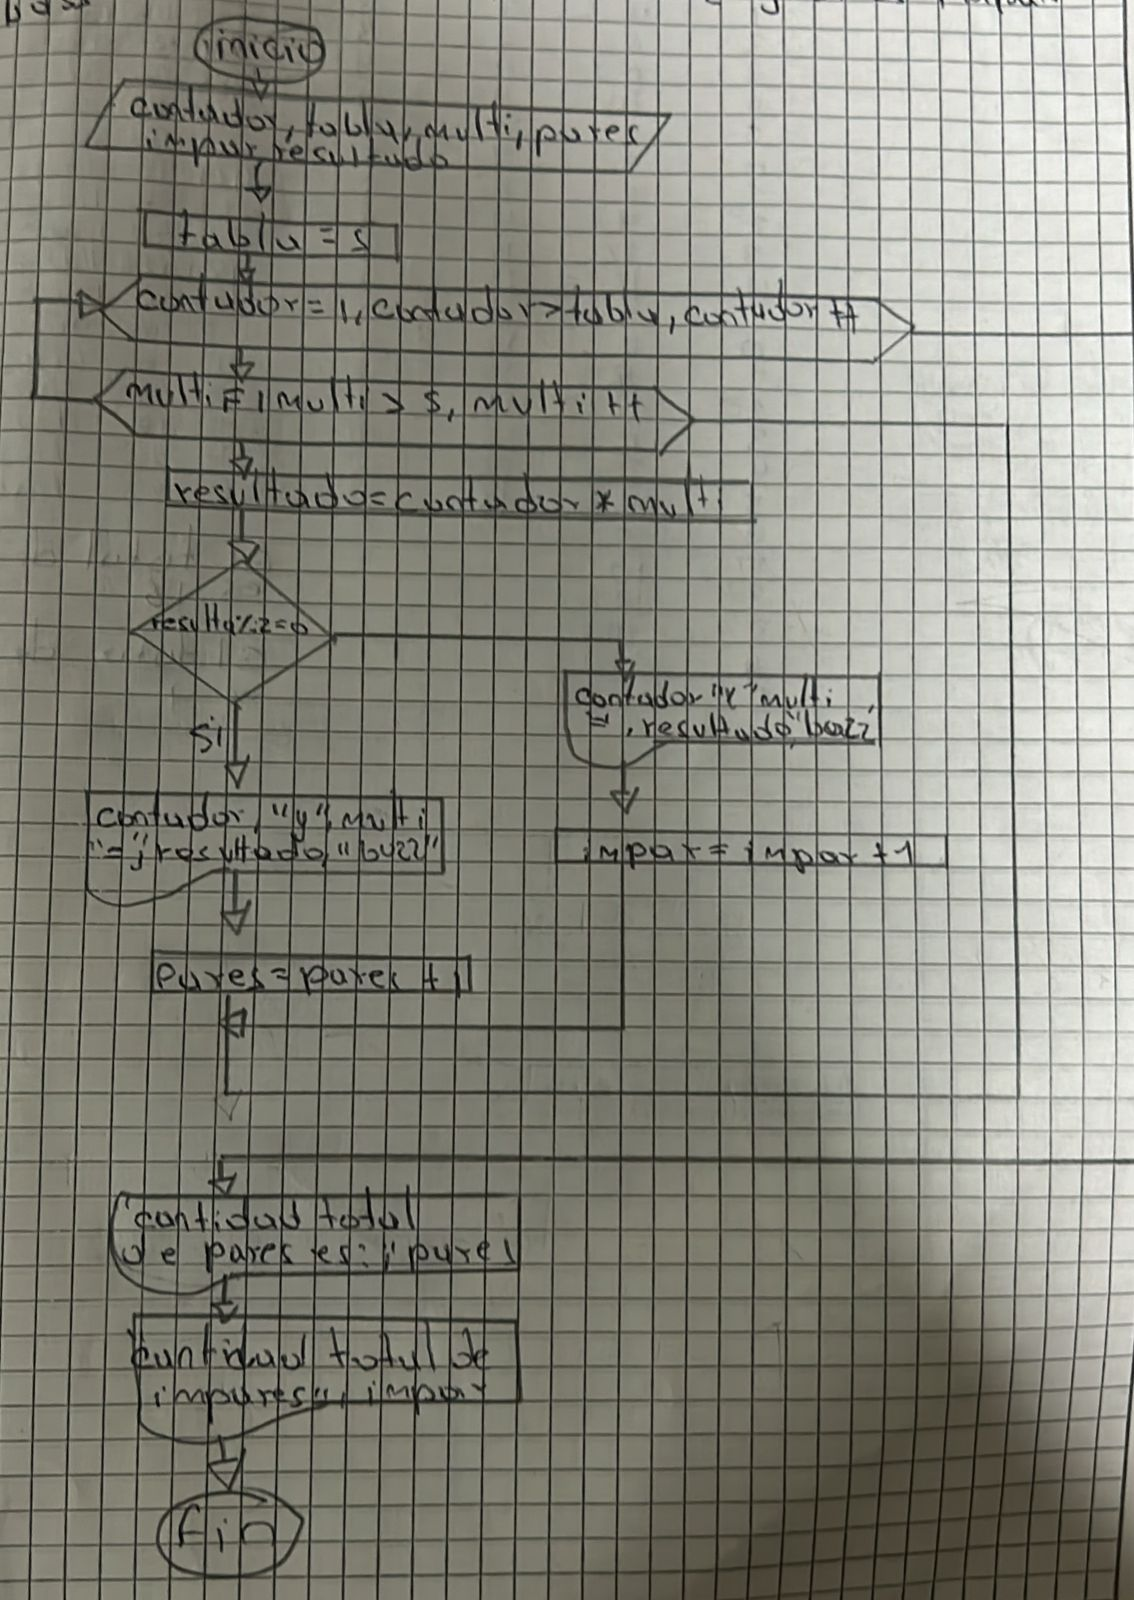 inicio
contador, tabla, multi, pares
impar, resultado
tabla = 5
contador = 1, contador > tabla, contador ++
multi = 1 multi > 5, multi ++
resultado = contador * multi
resulta%2=0
contador "x" multi
=", resultado, "bazz
Si
contador, "x", multi
"=", resultado, "buzz"
impar = impar + 1
pares = pares + 1
"cantidad total
de pares es:", pares
cantidad total de
impares", impar
fin